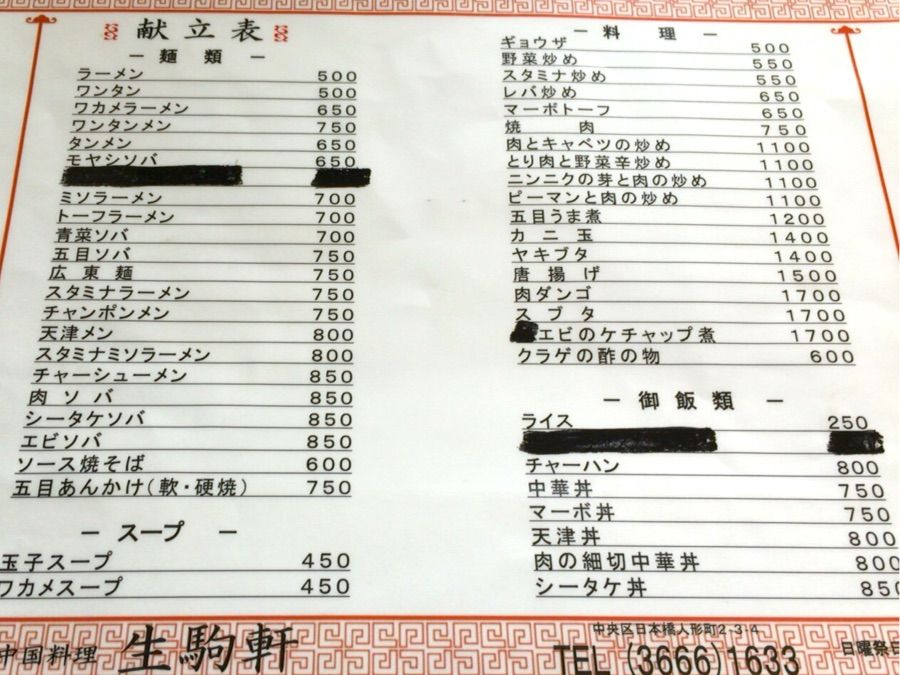 献立表
― 麺類 ―
ラーメン 500
ワンタン 500
ワカメラーメン 650
ワンタンメン 750
タンメン 650
モヤシソバ 650
ミソラーメン 700
トーフラーメン 700
青菜ソバ 700
五目ソバ 750
広東麺 750
スタミナラーメン 750
チャンポンメン 750
天津メン 800
スタミナミソラーメン 800
チャーシューメン 850
肉ソバ 850
シータケソバ 850
エビソバ 850
ソース焼そば 600
五目あんかけ(軟・硬焼) 750
― スープ ―
玉子スープ 450
ワカメスープ 450
― 料理 ―
ギョウザ 500
野菜炒め 550
スタミナ炒め 550
レバ炒め 650
マーボトーフ 650
焼肉 750
肉とキャベツの炒め 1100
とり肉と野菜辛炒め 1100
ニンニクの芽と肉の炒め 1100
ピーマンと肉の炒め 1100
五目うま煮 1200
カニ玉 1400
ヤキブタ 1400
唐揚げ 1500
肉ダンゴ 1700
スブタ 1700
エビのケチャップ煮 1700
クラゲの酢の物 600
― 御飯類 ―
ライス 250
チャーハン 800
中華丼 750
マーボ丼 750
天津丼 800
肉の細切中華丼 800
シータケ丼 850
中国料理 生駒軒
中央区日本橋人形町2-3-4
TEL (3666)1633
日曜祭日